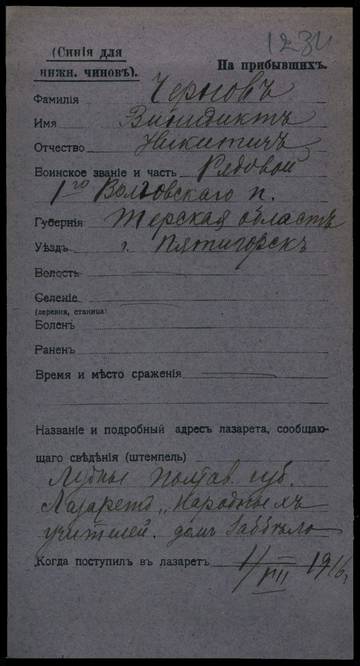 1234
(Синія для
нижн. чиновъ).
На прибывшихъ.
Фамилія Черновъ
Имя Винидиктъ
Отчество Никитичъ
Воинское званіе и часть Рядовой
1го Волговскаго п.
Губернія Терская область
Уѣздъ г. Пятигорскъ
Волость
Селеніе
(деревня, станица)
Боленъ
Раненъ
Время и мѣсто сраженія
Названіе и подробный адресъ лазарета, сообщаю-
щаго свѣдѣнія (штемпель)
Лубны Полтав. губ.
Лазаретъ „Народныхъ
учителей. домъ
Когда поступилъ въ лазаретъ 1/VIII 1916 г.